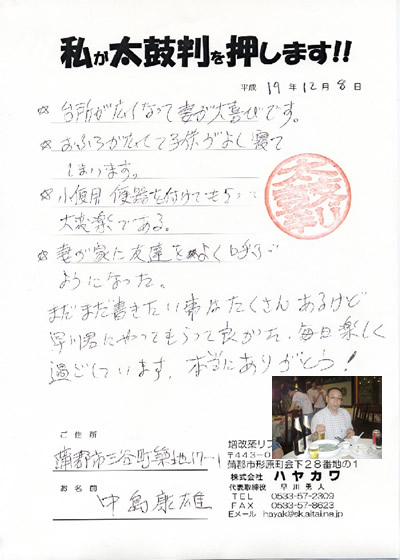 私が太鼓判を押します!!
平成 19年12月8日
☆台所が広くなって妻が大喜びです。
☆おふろが広くて子供がよく寝て
しまいます。
☆小便用便器を付けてもらって
大変楽である。
☆妻が家に友達をよく呼ぶ
ようになった。
まだまだ書きたい事はたくさんあるけど
早川君にやってもらって良かた。毎日楽しく
過ごしています。本当にありがとう!
ご住所
蒲郡市三谷町築地17-1
お名前
中島康雄
増改築リフ
〒443-0
蒲郡市形原町会下28番地の1
株式会社 ハヤカワ
代表取締役 早川勇人
TEL 0533-57-2309
FAX 0533-57-8623
Eメール hayak@sk.aitai.ne.jp